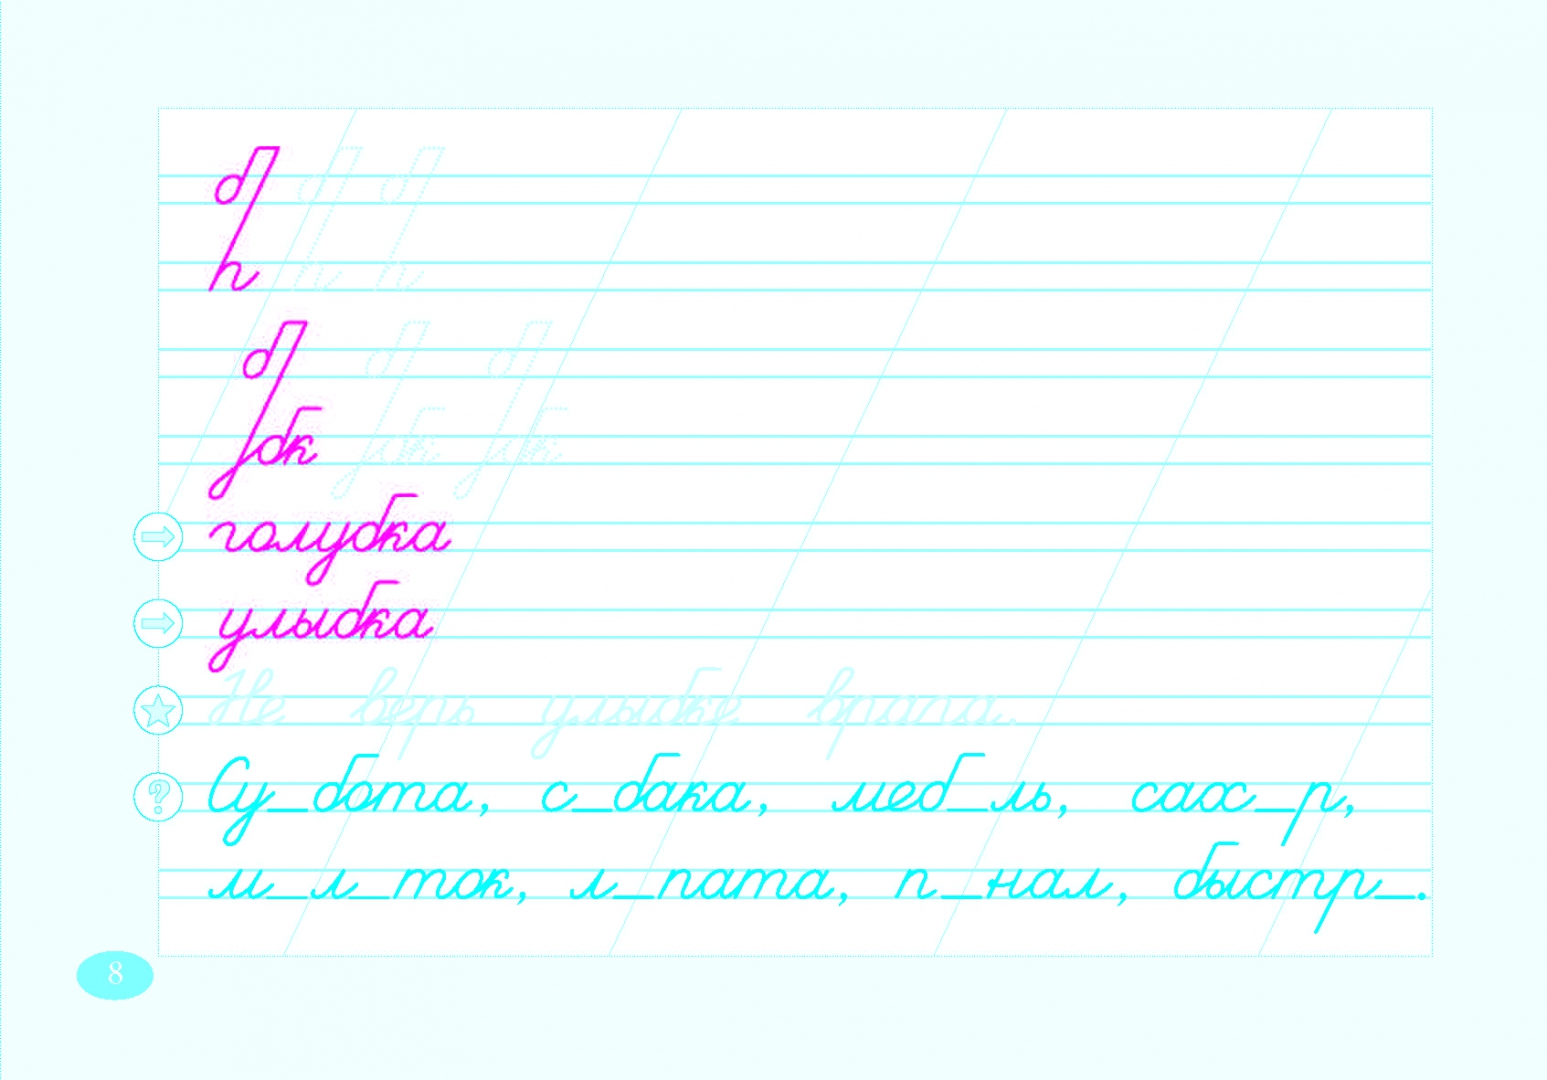 голубка
улыбка
Не верь улыбке врага.
Су_бота, с_бака, меб_ль, сах_р,
м_л_ток, л_пата, п_нал, быстр_.
8